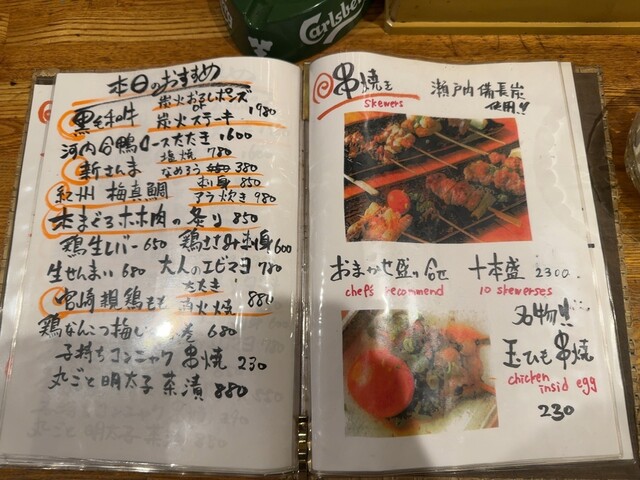 Carlsberg
本日のおすすめ
炭火おろしポンズ
or
黒毛和牛 炭火ステーキ 1980
河内合鴨ロースたたき 1600
塩焼 780
新さんま なめろう 380
刺身 850
紀州 梅真鯛 アラ炊き 980
本まぐろホホ肉の炙り 850
鶏生レバー 650 鶏ささみ刺身 600
生せんまい 680 大人のエビマヨ 780
たたき
宮崎親鶏もも 直火焼 880
鶏なんこつ梅し 巻 680
子持ちコンニャク 串焼 230
丸ごと明太子茶漬 880
串焼き
skewers
瀬戸内備長炭
使用!!
おまかせ盛り合せ 十本盛 2300
chefs recommend 10 skewerses
名物!!
玉ひも串焼
chicken
insid egg
230